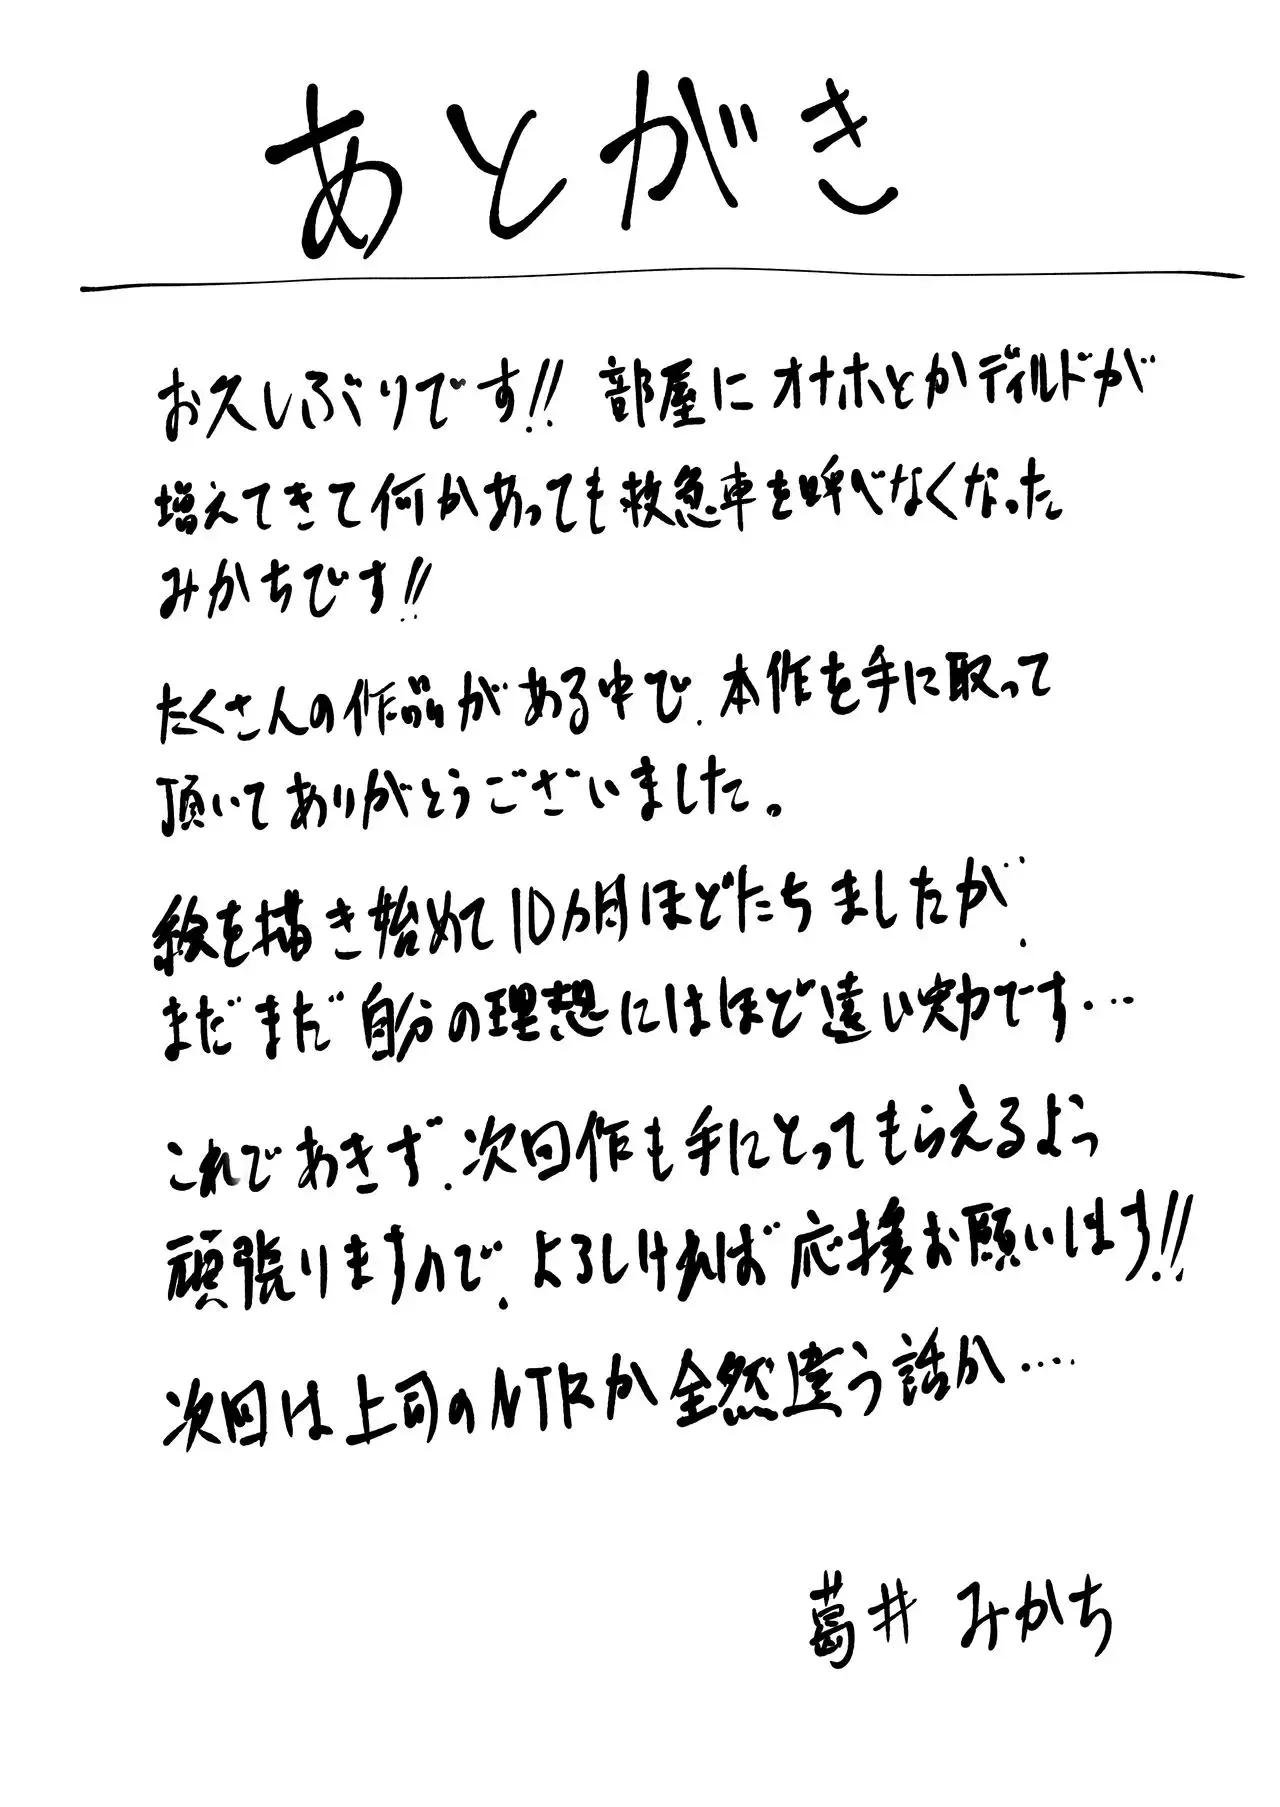 あとがき
お久しぶりです!! 部屋にオナホとかディルドが
増えてきて何かあっても救急車を呼べなくなった
みかちです!!
たくさんの作品がある中で、本作を手に取って
頂いてありがとうございました。
絵を描き始めて10ヵ月ほどたちましたが、
まだまだ自分の理想にはほど遠い実力です...
これであきず、次回作も手にとってもらえるよう
頑張りますので、よろしければ応援お願いします!!
次回は上司のNTRか全然違う話か....
葛井 みかち